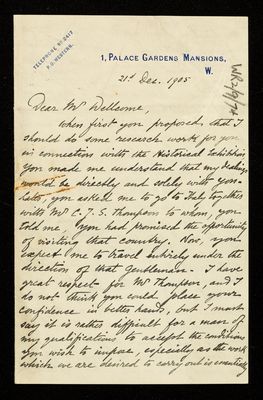 TELEPHONE No 2417
P.O. WESTERN.
1, PALACE GARDENS MANSIONS,
W.
21st Dec. 1905
Dear Mr Wellcome,
When first you proposed that I
should do some research work for you
in connection with the Historical Exhibition
you made me understand that my dealings
would be directly and solely with you.
Later, you asked me to go to Italy together
with Mr C. J. S. Thompson to whom, you
told me you had promised the opportunity
of visiting that country. Now, you
expect me to travel entirely under the
direction of that Gentleman. I have
great respect for Mr Thompson, and I
do not think you could place your
confidence in better hands, but I must
say it is rather difficult for a man of
my qualifications to accept the conditions
you wish to impose, especially as the work
which we are desired to carry out is essentially